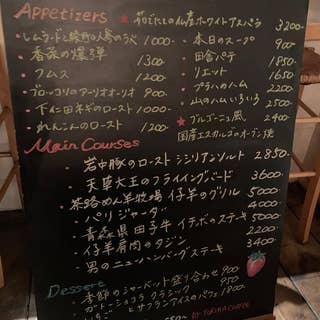 Appetizers
レムラードと 1000-
香菜の爆弾 1300
フムス 1200
ブロッコリのアーリオオーリオ 900-
下仁田ネギのロースト 1000-
れんこんのロースト 1200
ホワイトアスパラ 3200-
本日のスープ 900-
田舎パテ 1850-
リエット 1650
プラハのハム 2200
山のハムいろいろ 2500-
ブルゴーニュ風
国産エスカルゴのオーブン焼
Main Courses
岩中豚のロースト シシリアンソルト 2850-
天草大王のフライングバード 3600
茶路めん羊牧場 仔羊のグリル 4000-
パリジャーダ 5000
青森県 田子牛 イチボのステーキ 5000-
仔羊肩肉のタジン 3400-
男のニューハンバーグステーキ 2200
Dessert
季節のシャーベット盛り合わせ 900
ガトーショコラ クラシック 950
サフランアイスのパフェ 1800-